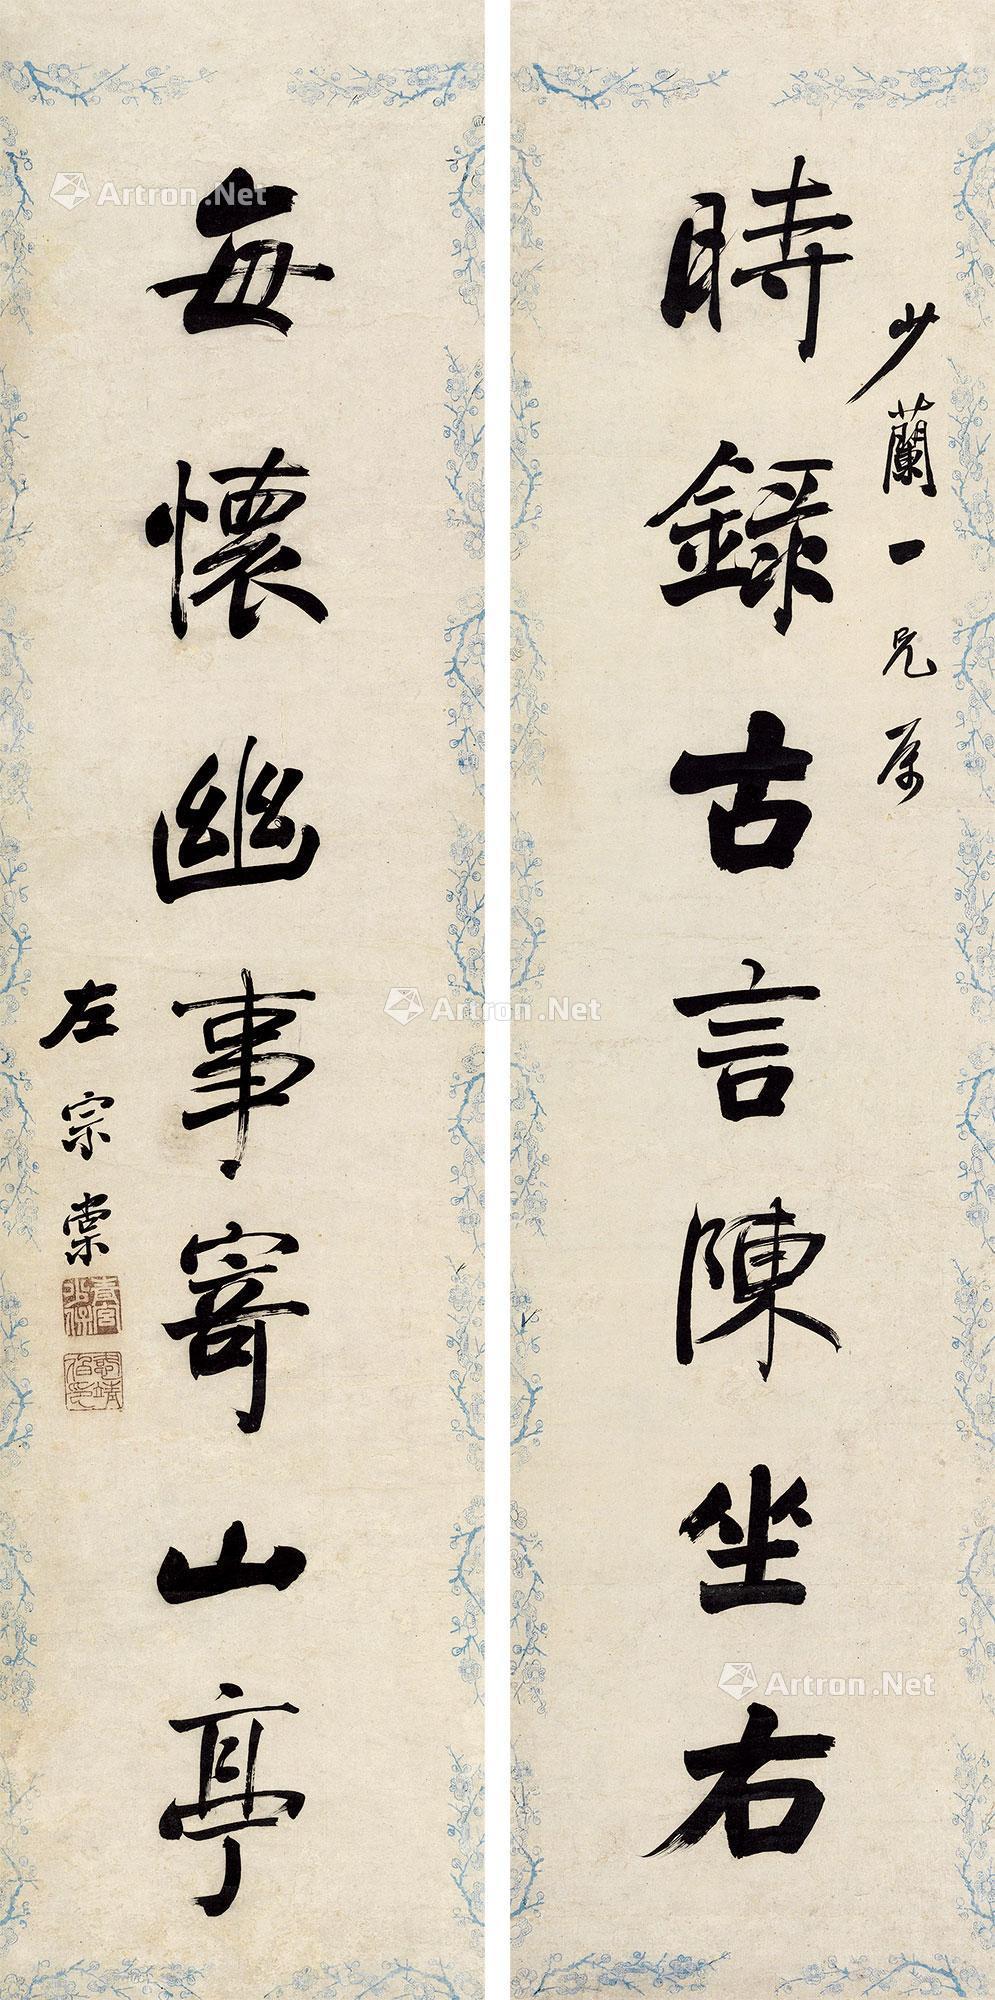 少蘭一兄属
時錄古言陳坐右
每懷幽事寄山亭
左宗棠
青宮太保
恪靖伯章
Artron.Net
Artron.Net
Artron.Net